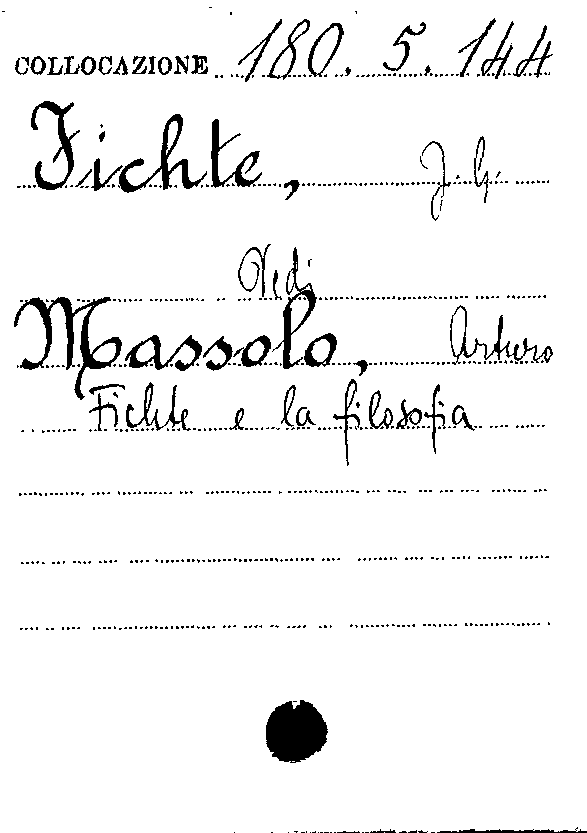 COLLOCAZIONE 180.5.144
Fichte, J. G.
Vedi
Massolo, Arturo
Fichte e la filosofia